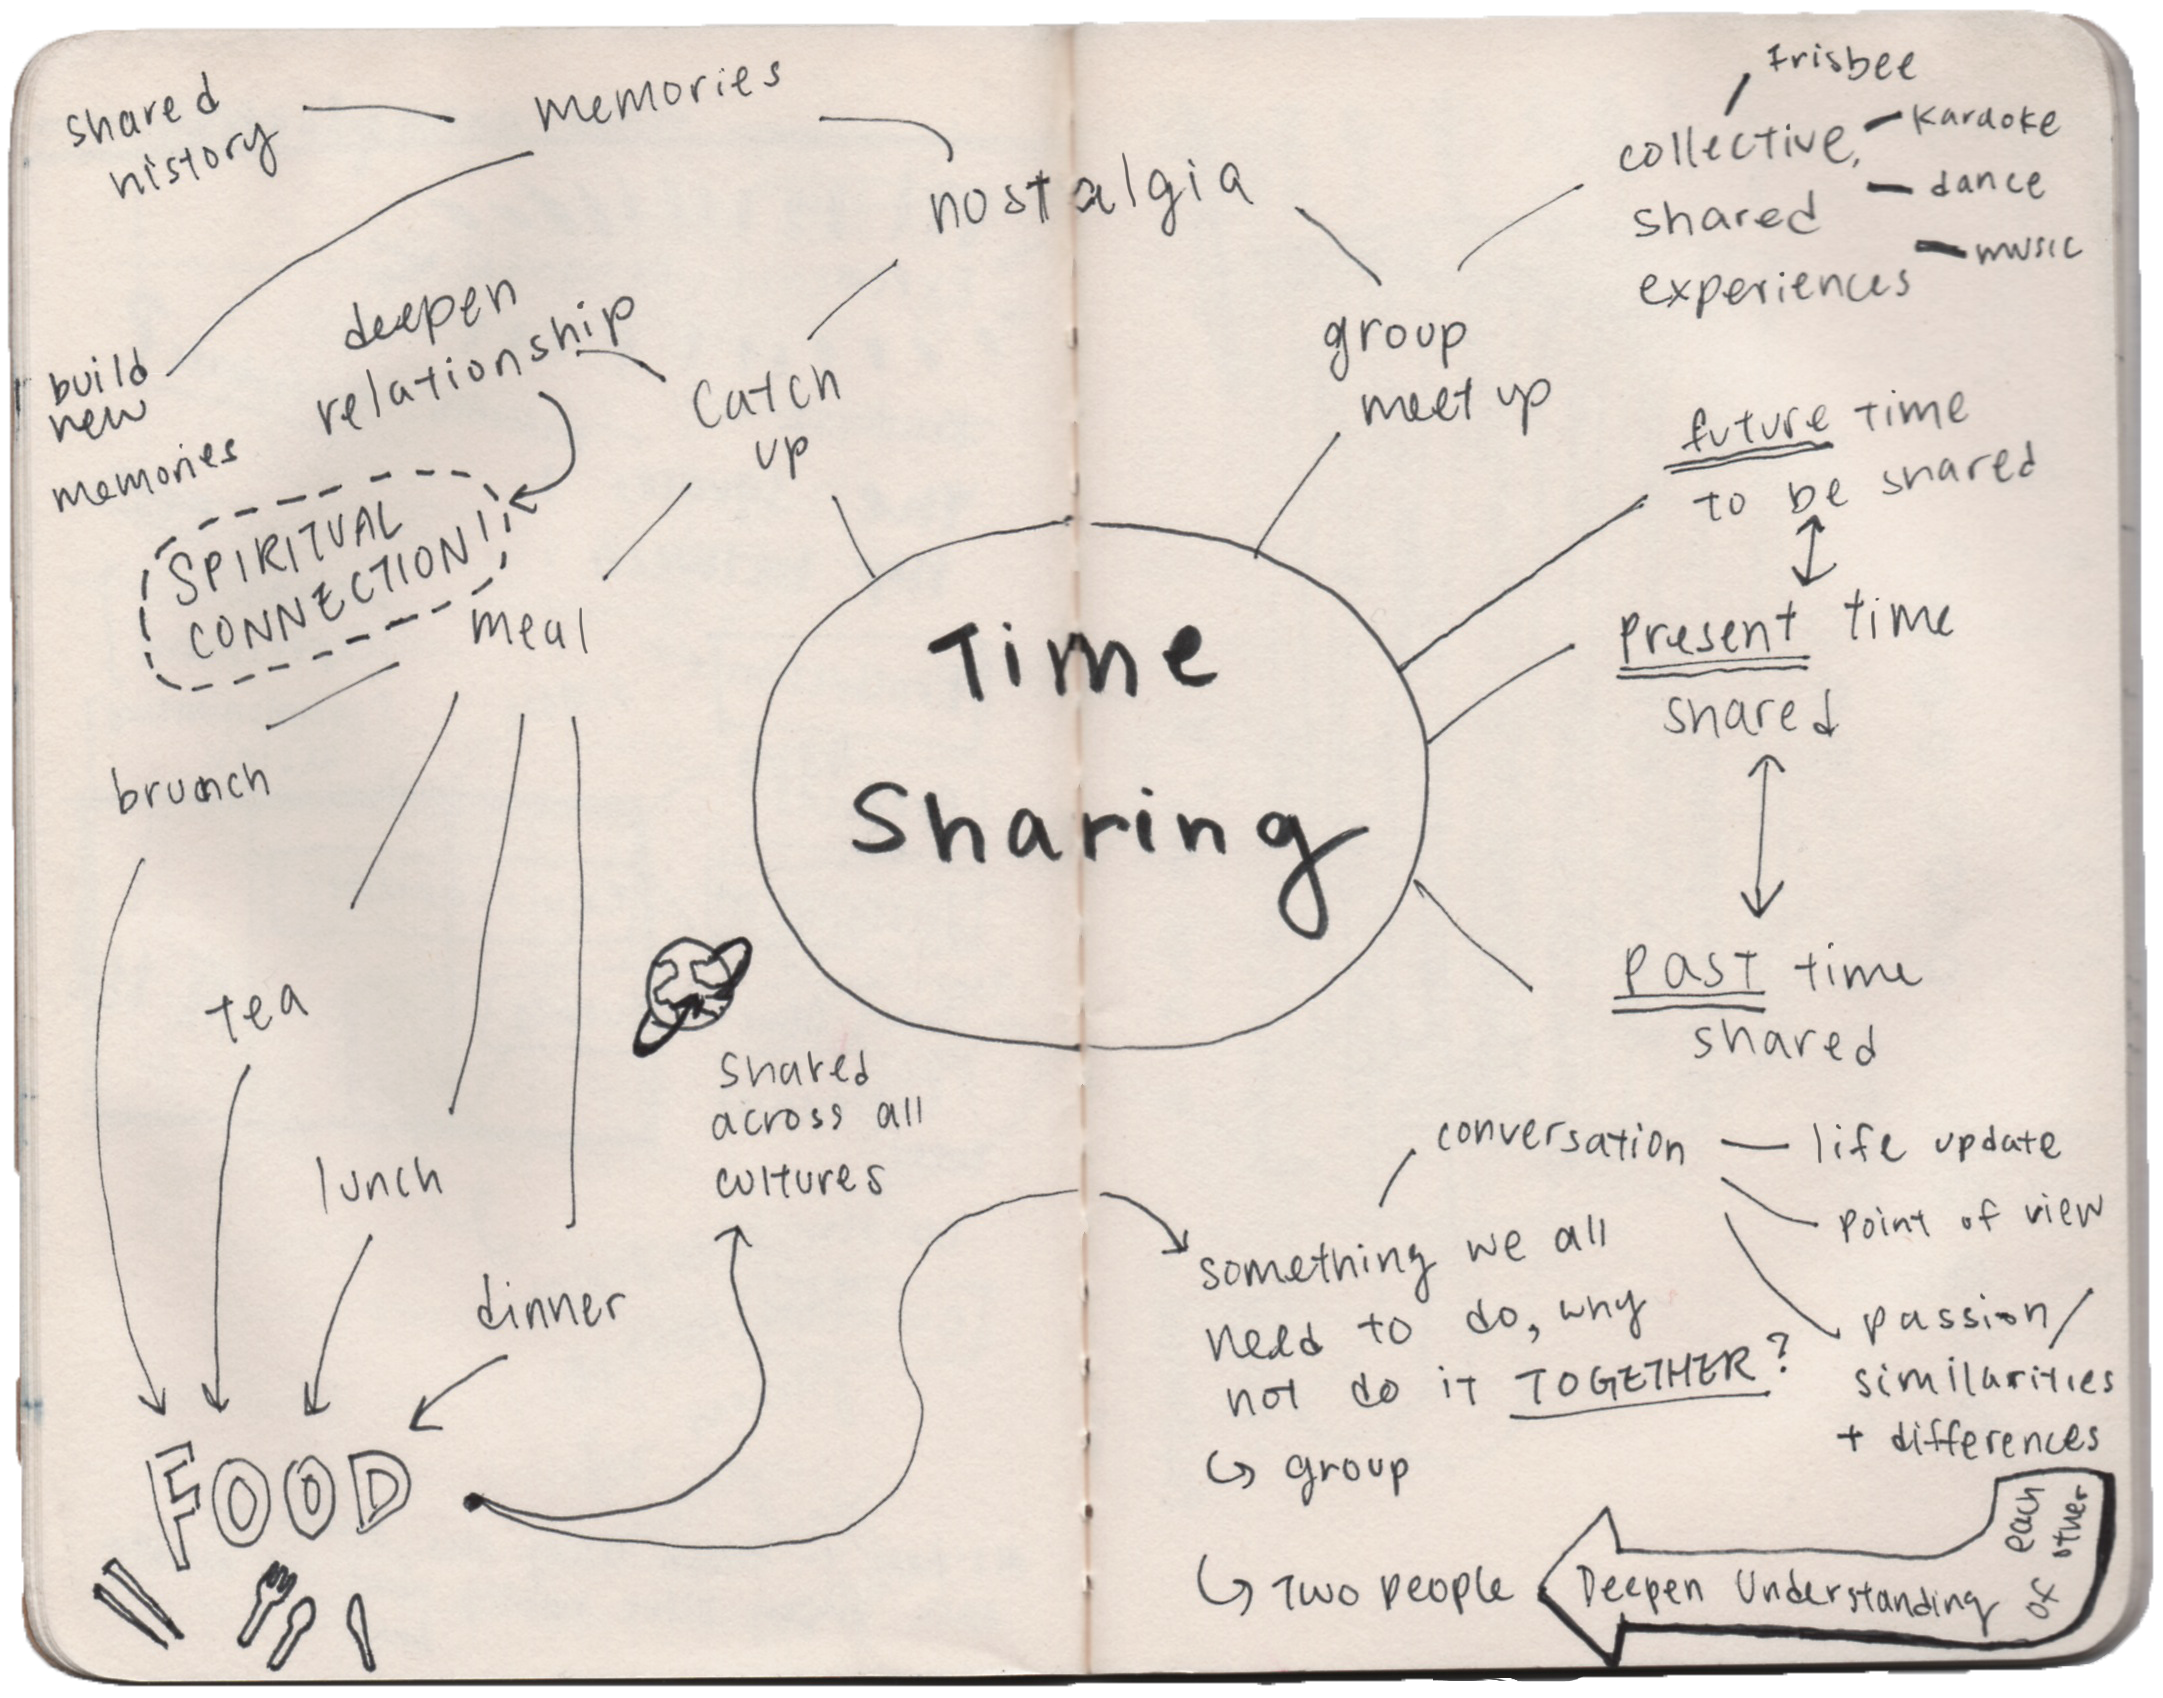 shared
history
memories
nostalgia
build
new
memories
deepen
relationship
SPIRITUAL
CONNECTION!
catch
up
meal
brunch
tea
lunch
dinner
FOOD
shared
across all
cultures
Time
Sharing
group
meet up
collective,
shared
experiences
Frisbee
karaoke
dance
music
future time
to be shared
present time
shared
past time
shared
conversation
life update
point of view
passion/
similarities
+ differences
something we all
need to do, why
not do it TOGETHER?
group
two people
Deepen Understanding
of
each
other